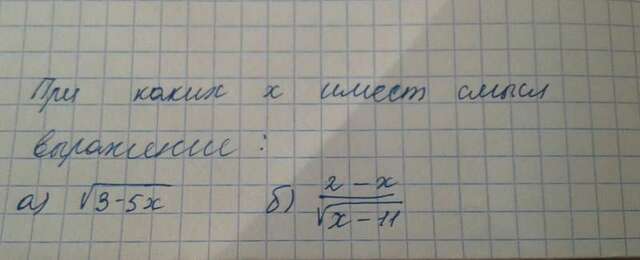 При каких x имеет смысл
выражение :
а) √3-5x б) 2-x/√x-11